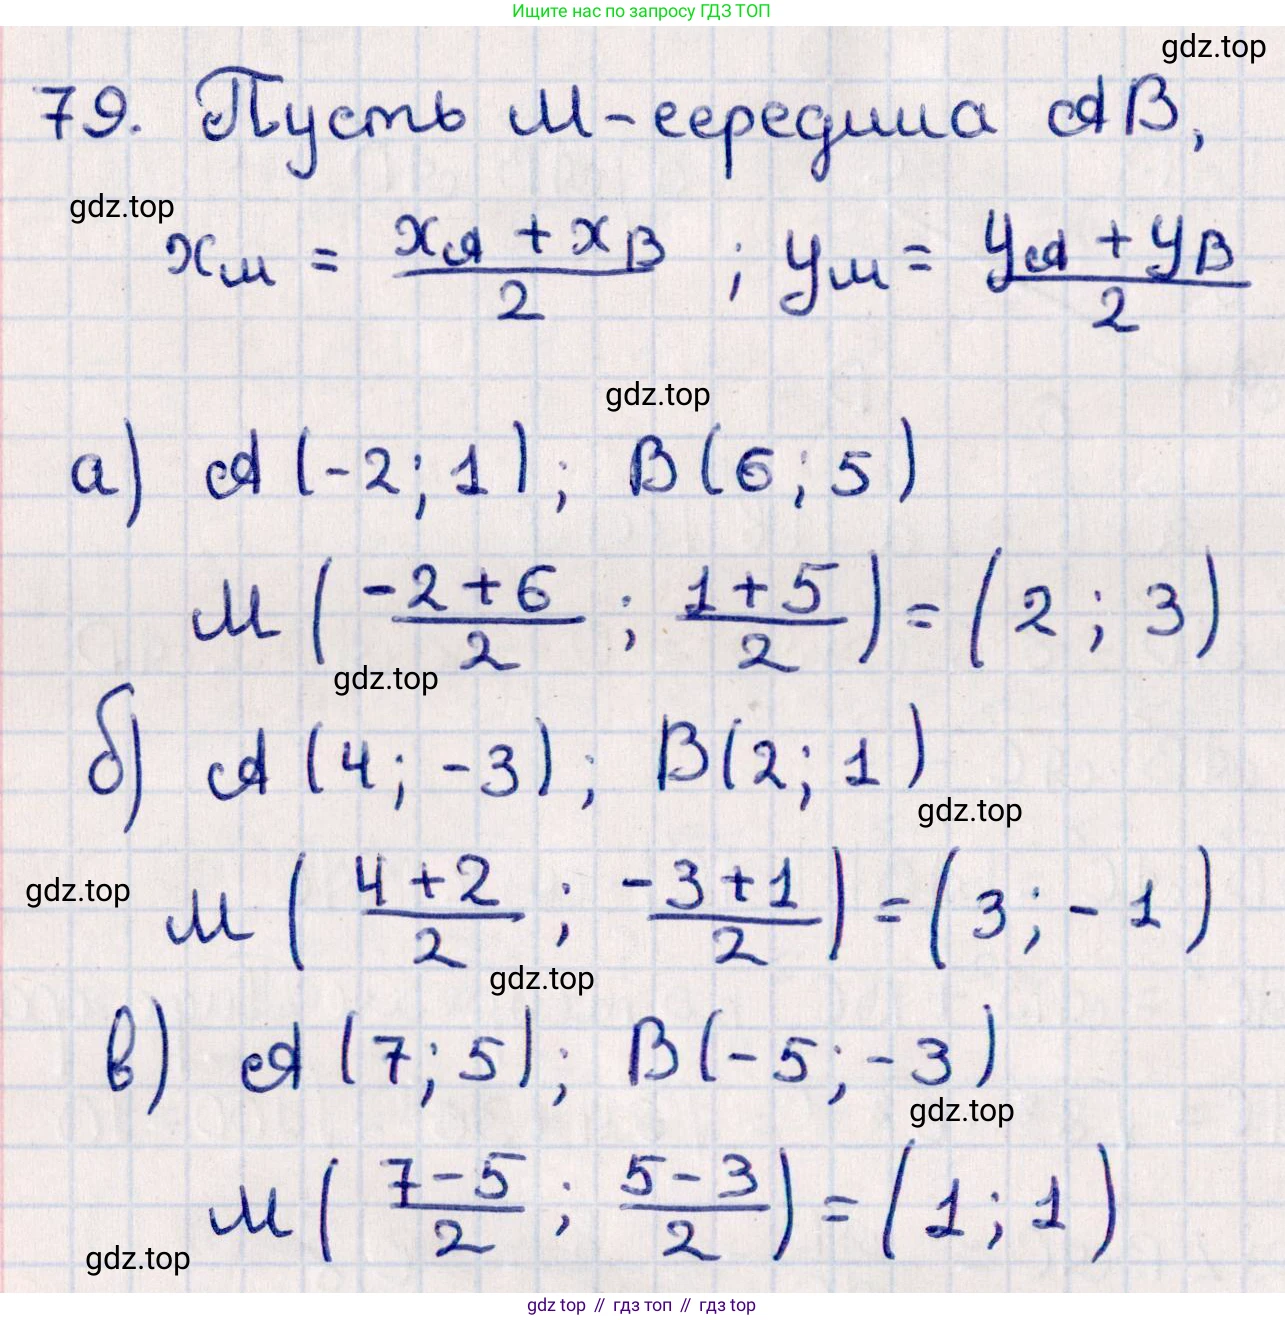 Ищите нас по запросу ГДЗ ТОП
gdz.top
79. Пусть M - середина AB,
gdz.top
x_M = (x_A + x_B)/2 ; y_M = (y_A + y_B)/2
gdz.top
а) A(-2; 1); B(6; 5)
M((-2+6)/2 ; (1+5)/2) = (2; 3)
gdz.top
б) A(4; -3); B(2; 1)
gdz.top
gdz.top
M((4+2)/2 ; (-3+1)/2) = (3; -1)
gdz.top
в) A(7; 5); B(-5; -3)
gdz.top
M((7-5)/2 ; (5-3)/2) = (1; 1)
gdz.top
gdz top // гдз топ // гдз top